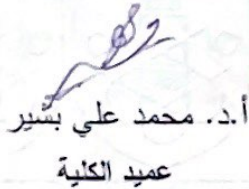 أ.د. محمد علي بشير
عميد الكلية